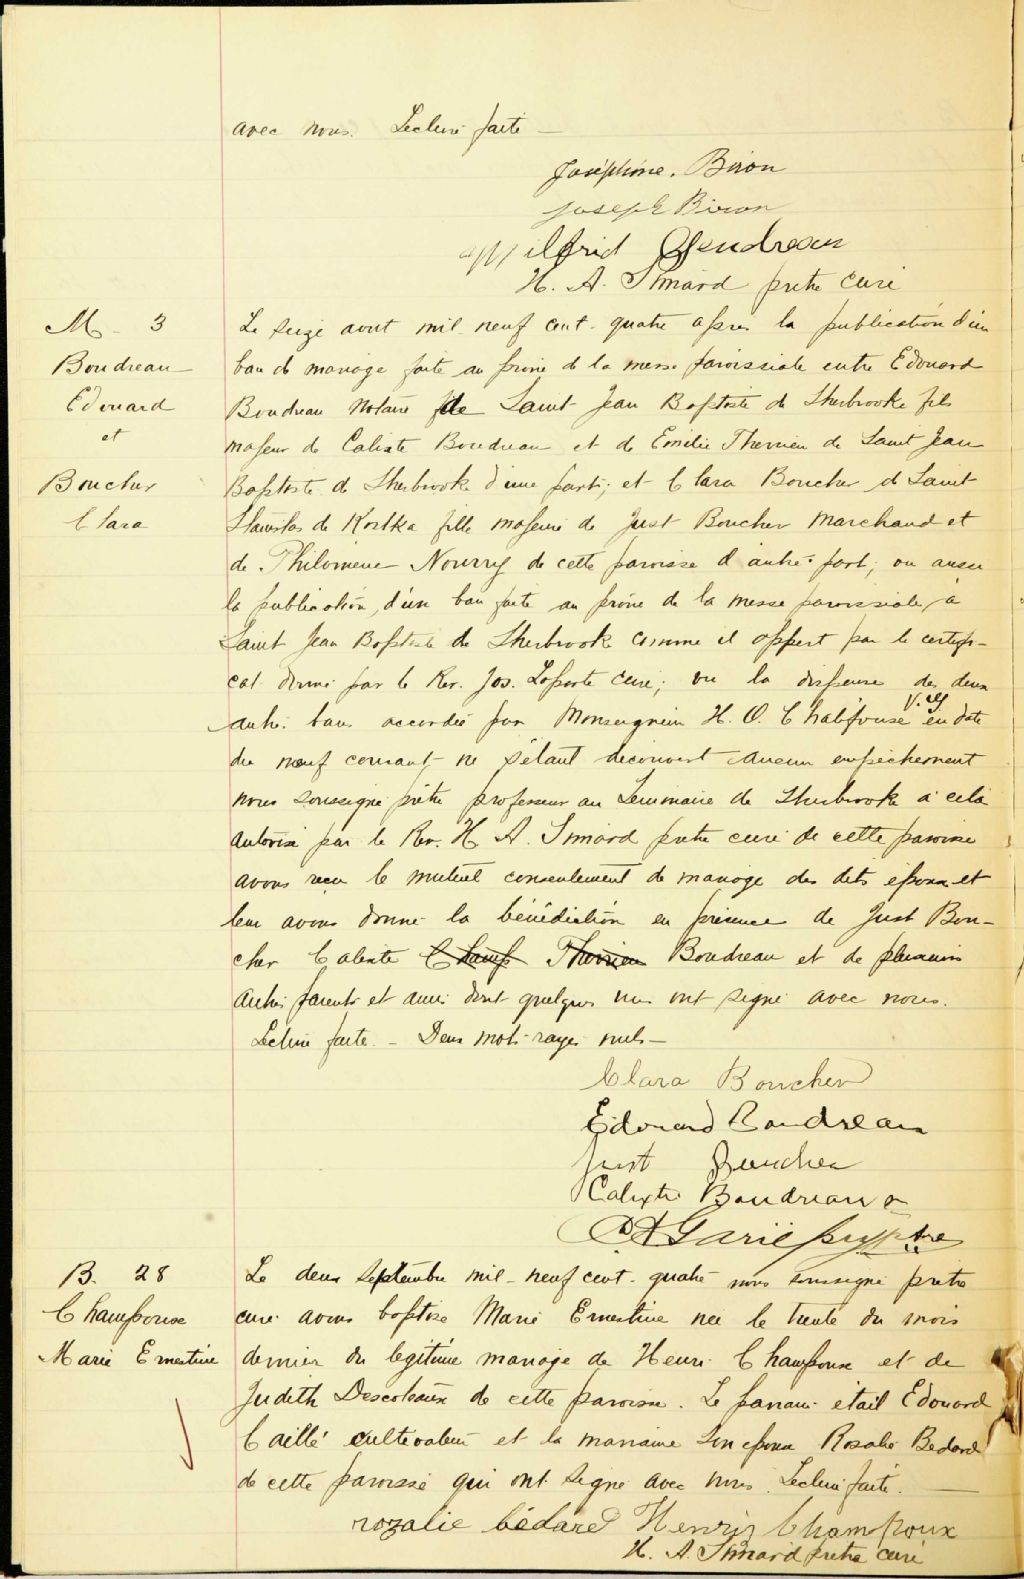 avec nous. Lecture faite —
Joséphine. Biron
Joseph Biron
Wilfrid Gendreau
H. A. Simard ptre curé
M - 3
Boudreau
Edouard
et
Boucher
Clara
Le seize aout mil-neuf-cent-quatre apres la publication d'un
ban de mariage faite au prône de la messe paroissiale entre Edouard
Boudreau Notaire de Saint Jean Baptiste de Sherbrooke fils
majeur de Calixte Boudreau et de Emélie Therrien de Saint Jean
Baptiste de Sherbrooke d'une part; et Clara Boucher de Saint
Stanislas de Kostka fille majeure de Just Boucher Marchand et
de Philomène Nourry de cette paroisse d'autre part; vu aussi
la publication d'un ban faite au prône de la messe paroissiale, à
Saint Jean Baptiste de Sherbrooke comme il appert par le certifi-
cat donné par le Rev. Jos. Laporte curé; vu la dispense des deux
autres bans accordée par Monseigneur H. O. Chalifoux V.G. en date
du neuf courant, ne s'étant découvert aucun empêchement
nous soussigné prêtre professeur au Seminaire de Sherbrooke à cela
autorisé par le Rev. H. A. Simard prêtre curé de cette paroisse
avons reçu le mutuel consentement de mariage des dits époux et
leur avons donné la bénédiction en présence de Just Bou-
cher Calixte Champ Therrien Boudreau et de plusieurs
autres parents et amis dont quelques uns ont signé avec nous.
Lecture faite. - Deux mots rayés nuls —
Clara Boucher
Edouard Boudreau
Just Boucher
Calixte Boudreau
A. Garié ptre
B. 28
Champoux
Marie Ernestine
Le deux Septembre mil-neuf cent-quatre nous soussigné pretre
curé avons baptisé Marie Ernestine née le trente du mois
dernier du légitime mariage de Henri Champoux et de
Judith Descoteaux de cette paroisse. Le parrain était Edouard
Caillé cultivateur et la marraine son epouse Rosalie Bedard
de cette paroisse qui ont signé avec nous. Lecture faite. —
rozalie bédard Henri Champoux
H. A. Simard pretre curé